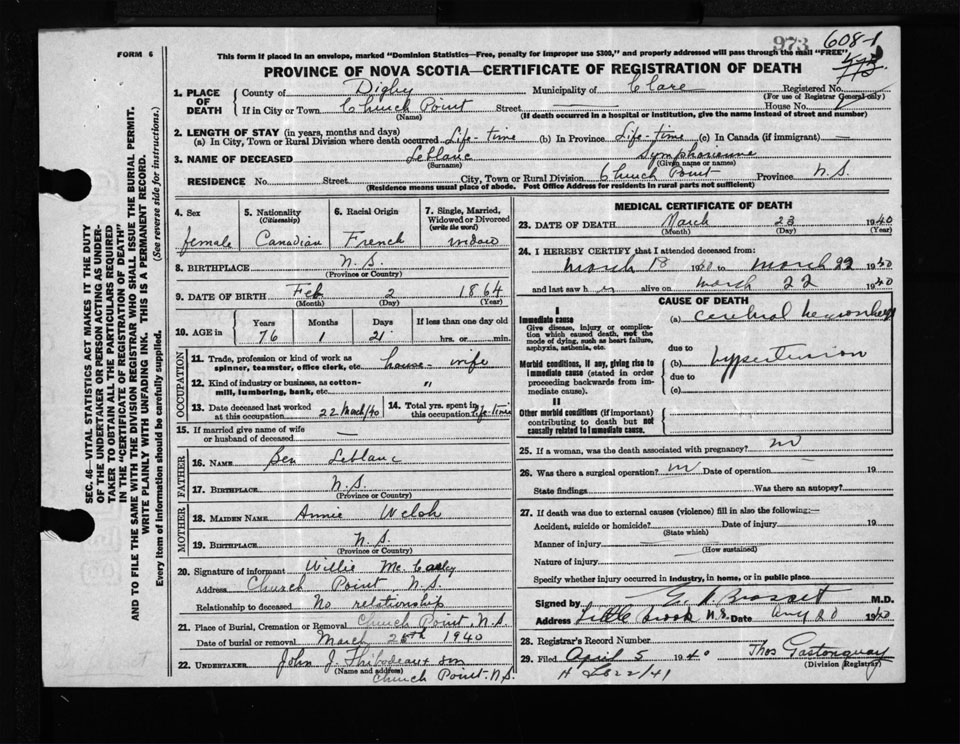 973 608-1
FORM 6
This form if placed in an envelope, marked "Dominion Statistics—Free, penalty for improper use $300," and properly addressed will pass through the mail "FREE"
PROVINCE OF NOVA SCOTIA—CERTIFICATE OF REGISTRATION OF DEATH
SEC. 46—VITAL STATISTICS ACT MAKES IT THE DUTY
OF THE UNDERTAKER OR PERSON ACTING AS UNDER-
TAKER TO OBTAIN ALL THE PARTICULARS REQUIRED
IN THE "CERTIFICATE OF REGISTRATION OF DEATH"
AND TO FILE THE SAME WITH THE DIVISION REGISTRAR WHO SHALL ISSUE THE BURIAL PERMIT.
WRITE PLAINLY WITH UNFADING INK. THIS IS A PERMANENT RECORD.
Every item of information should be carefully supplied. (See reverse side for instructions.)
1. PLACE OF DEATH
County of Digby Municipality of Clare Registered No.
(For use of Registrar General only)
If in City or Town Church Point Street — House No.
(Name) (If death occurred in a hospital or institution, give the name instead of street and number)
2. LENGTH OF STAY (in years, months and days)
(a) In City, Town or Rural Division where death occurred Life-time (b) In Province Life-time (c) In Canada (if immigrant) —
3. NAME OF DECEASED Leblanc Symphorienne
(Surname) (Given name or names)
RESIDENCE No. Street City, Town or Rural Division Church Point Province N.S.
(Residence means usual place of abode. Post Office Address for residents in rural parts not sufficient)
4. Sex female
5. Nationality (Citizenship) Canadian
6. Racial Origin French
7. Single, Married, Widowed or Divorced (write the word) widow
8. BIRTHPLACE N.S.
(Province or Country)
9. DATE OF BIRTH Feb 2 1864
(Month) (Day) (Year)
10. AGE in Years Months Days If less than one day old
76 1 21 hrs. or min.
OCCUPATION
11. Trade, profession or kind of work as spinner, teamster, office clerk, etc. house-wife
12. Kind of industry or business, as cotton-mill, lumbering, bank, etc. "
13. Date deceased last worked at this occupation 22 March/40
14. Total yrs. spent in this occupation life-time
15. If married give name of wife or husband of deceased —
FATHER
16. NAME Ben Leblanc
17. BIRTHPLACE N.S.
(Province or Country)
MOTHER
18. MAIDEN NAME Annie Welsh
19. BIRTHPLACE N.S.
(Province or Country)
20. Signature of informant Willie Mc
Address Church Point N.S.
Relationship to deceased No relationship
21. Place of Burial, Cremation or Removal Church Point N.S.
Date of burial or removal March 25th 1940
22. UNDERTAKER John J. Thibodeau & son
(Name and address)
Church Point. N.S.
MEDICAL CERTIFICATE OF DEATH
23. DATE OF DEATH March 23 1940
(Month) (Day) (Year)
24. I HEREBY CERTIFY that I attended deceased from:
March 18 1940 to March 22 1940
and last saw h er alive on March 22 1940
CAUSE OF DEATH
I
Immediate cause
Give disease, injury or complica-
tion which caused death, not the
mode of dying, such as heart failure,
asphyxia, asthenia, etc.
(a) cerebral hemorrhage
due to
Morbid conditions, if any, giving rise to
immediate cause (stated in order
proceeding backwards from im-
mediate cause).
(b) hypertension
due to
(c)
II
Other morbid conditions (if important)
contributing to death but not
causally related to immediate cause.
25. If a woman, was the death associated with pregnancy? no
26. Was there a surgical operation? no Date of operation 19
State findings Was there an autopsy?
27. If death was due to external causes (violence) fill in also the following:—
Accident, suicide or homicide? Date of injury 19
(State which)
Manner of injury
(How sustained)
Nature of injury
Specify whether injury occurred in industry, in home, or in public place
Signed by M.D.
Address Little Brook N.S. Date 20 1940
28. Registrar's Record Number
29. Filed April 5 1940 Thos Gastonguay
(Division Registrar)